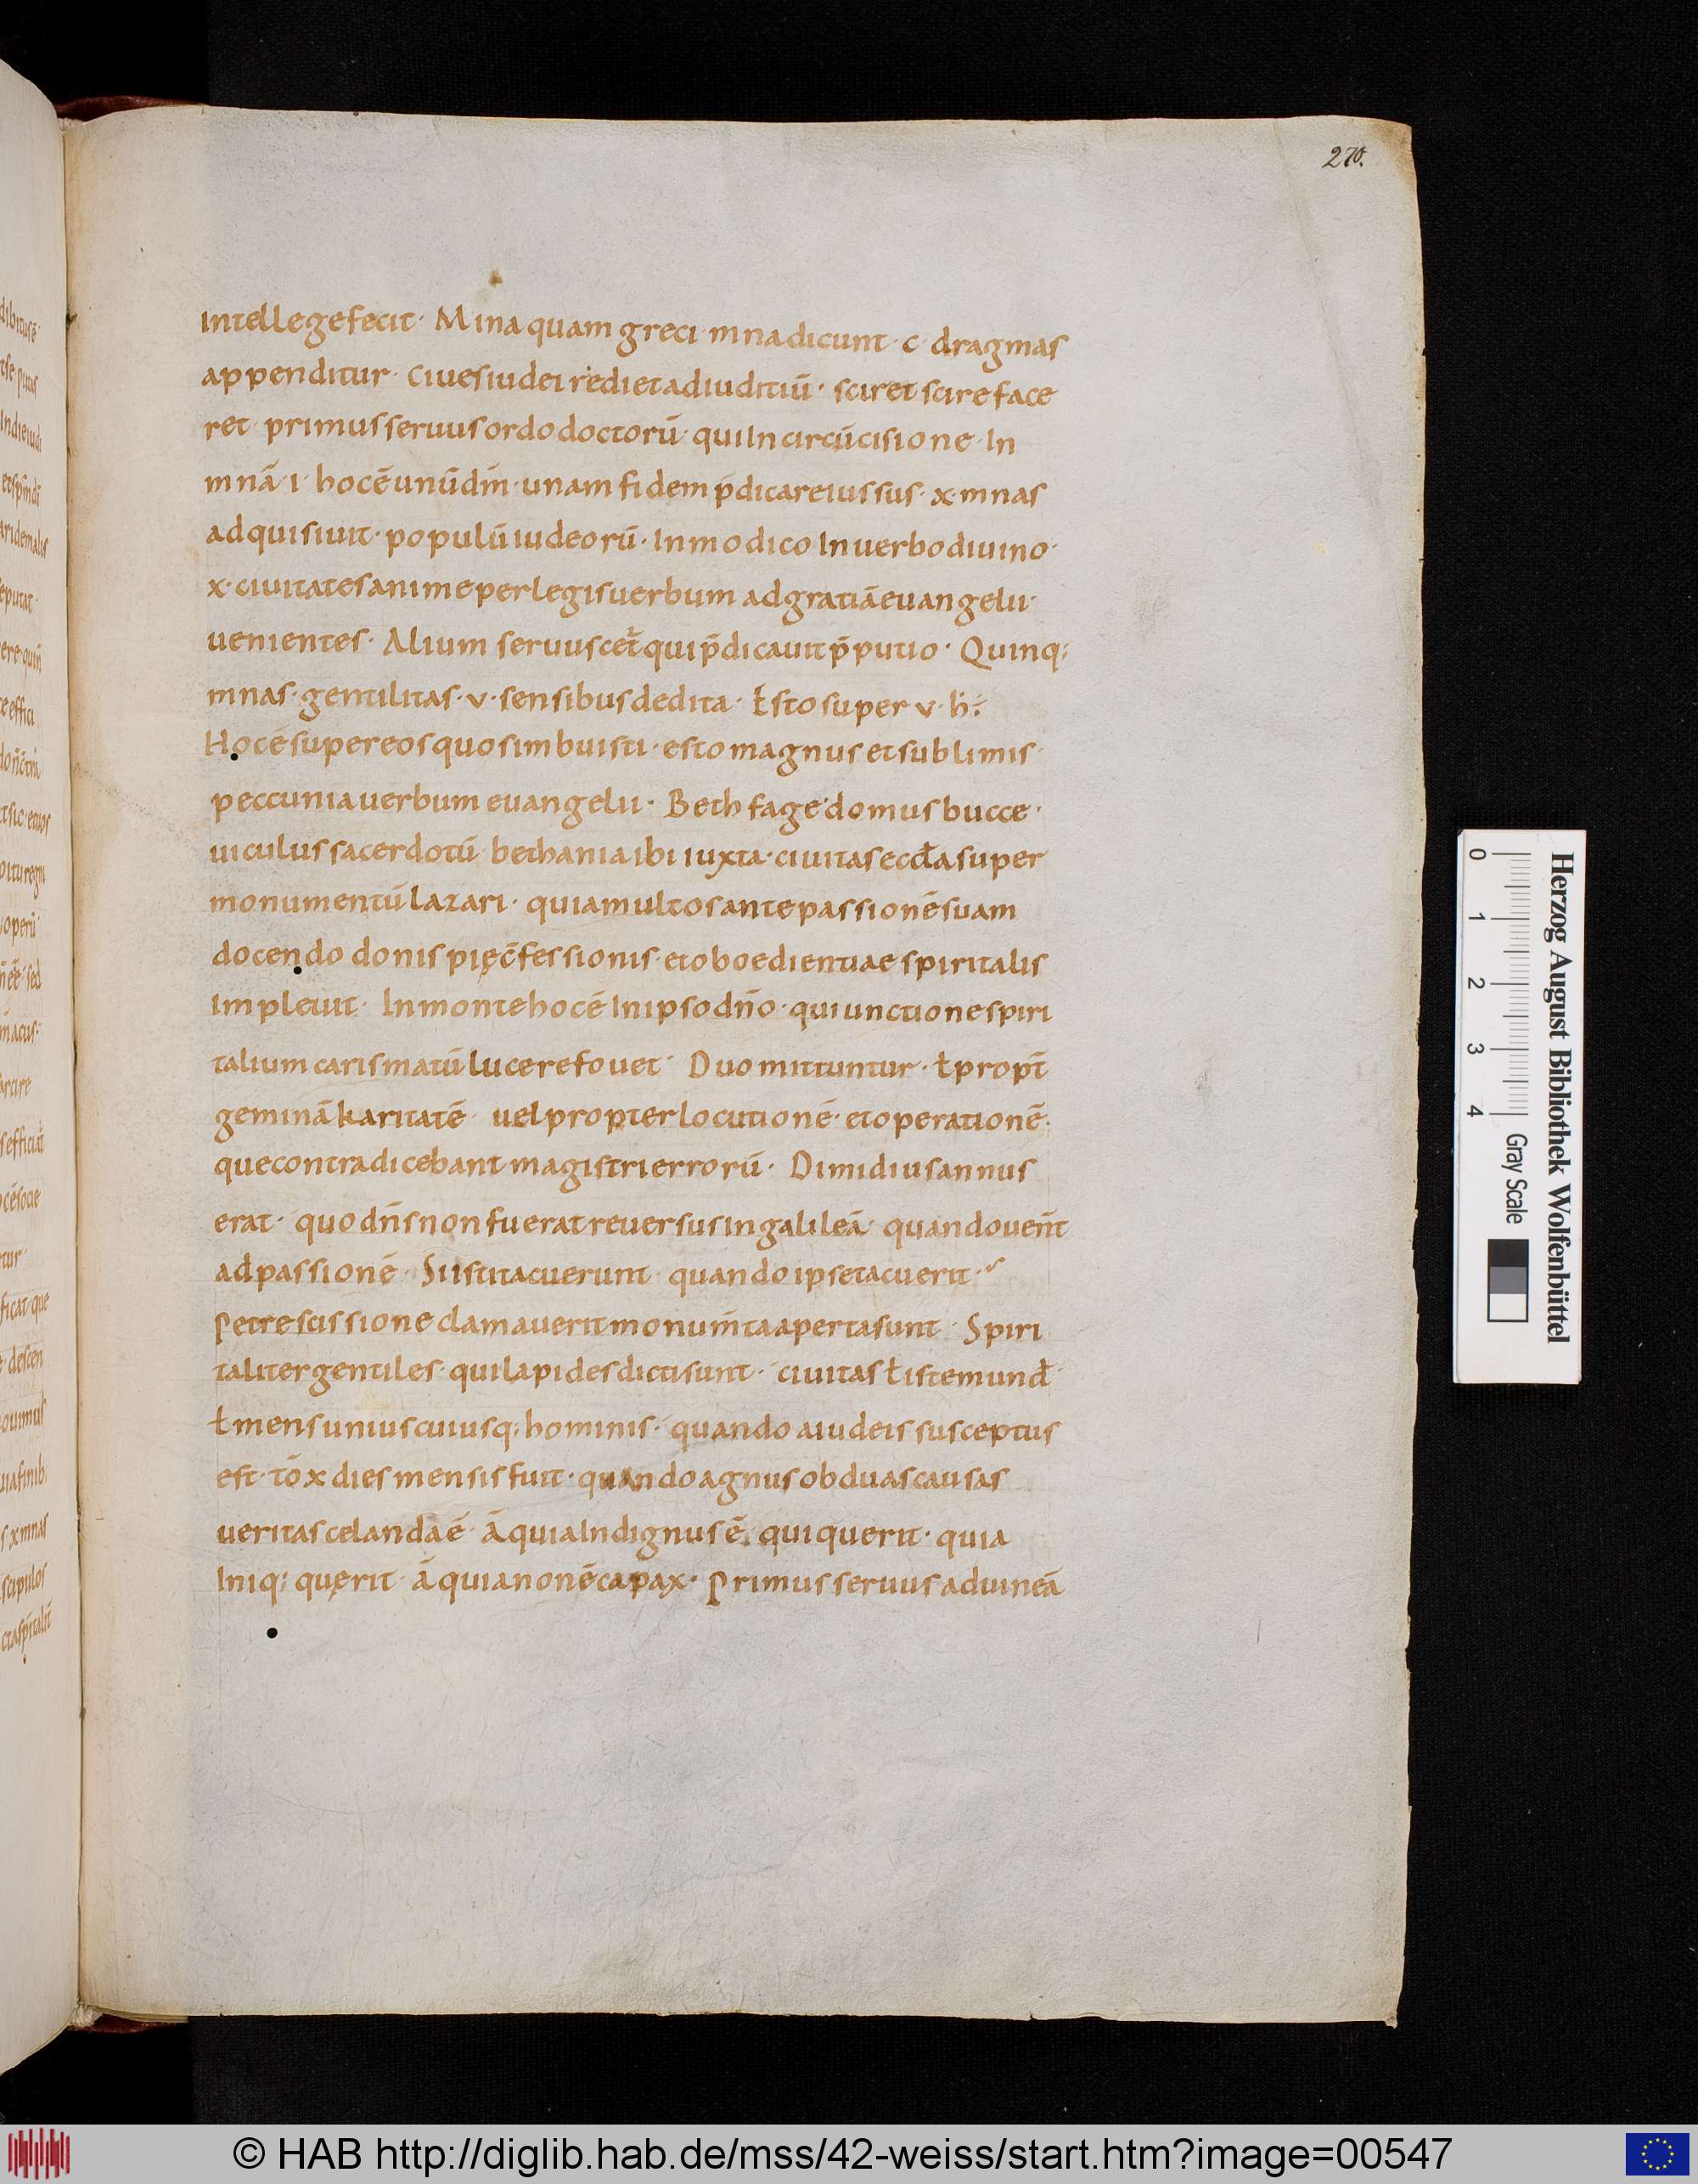 270.
intellege fecit · Mina quam greci · mna dicunt · c · dragmas
appenditur · Ciues iudei rediet ad iuditiū · sciret scire face
ret · primus seruus ordo doctorū · qui In circūcisione · In
mnā · i · hoc ē unū dm̄ · unam fidem p̄dicare iussus · x · mnas
adquisiuit · populū iudeorū · In modico In uerbo diuino ·
x · ciuitates anime per legis uerbum ad gratiā euangelii ·
uenientes · Alium seruus cet̄ qui p̄dicauit p̄putio · Quinq;
mnas · gentilitas · v · sensibus dedita · Esto super v · h ·
Hoc ē super eos quos imbuisti · esto magnus et sublimis ·
peccunia uerbum euangelii · Bethfage domus bucce ·
uiculus sacerdotū · bethania ibi iuxta · ciuitas eccƚa super
monumentū lazari · quia multos ante passionē suam
docendo donis pię c̄fessionis · et oboedientiae spiritalis
impleuit · In monte hoc ē In ipso dn̄o · qui unctione spiri
talium carismatū luce refouet · Duo mittuntur · ƚ propt̄
geminā karitatē · uel propter locutionē · et operationē ·
que contradicebant magistri errorū · Dimidius annus
erat · quo dn̄s non fuerat reuersus in galileā · quando uen̄it
ad passionē · Si isti tacuerunt · quando ipse tacuerit ·
Petre scissione clamauerit monum̄ta aperta sunt · Spiri
taliter gentiles · qui lapides dicti sunt · ciuitas ƚ iste mund̄ ·
ƚ mens uniuscuiusq; hominis · quando a iudeis susceptus
est · tō x dies mensis fuit · quando agnus ob duas causas
ueritas celanda ē · ā quia Indignus ē · qui querit · quia
Iniq; quęrit · ā quia non ē capax · Primus seruus ad uineā
Herzog August Bibliothek Wolfenbüttel
0 1 2 3 4 Gray Scale
© HAB http://diglib.hab.de/mss/42-weiss/start.htm?image=00547